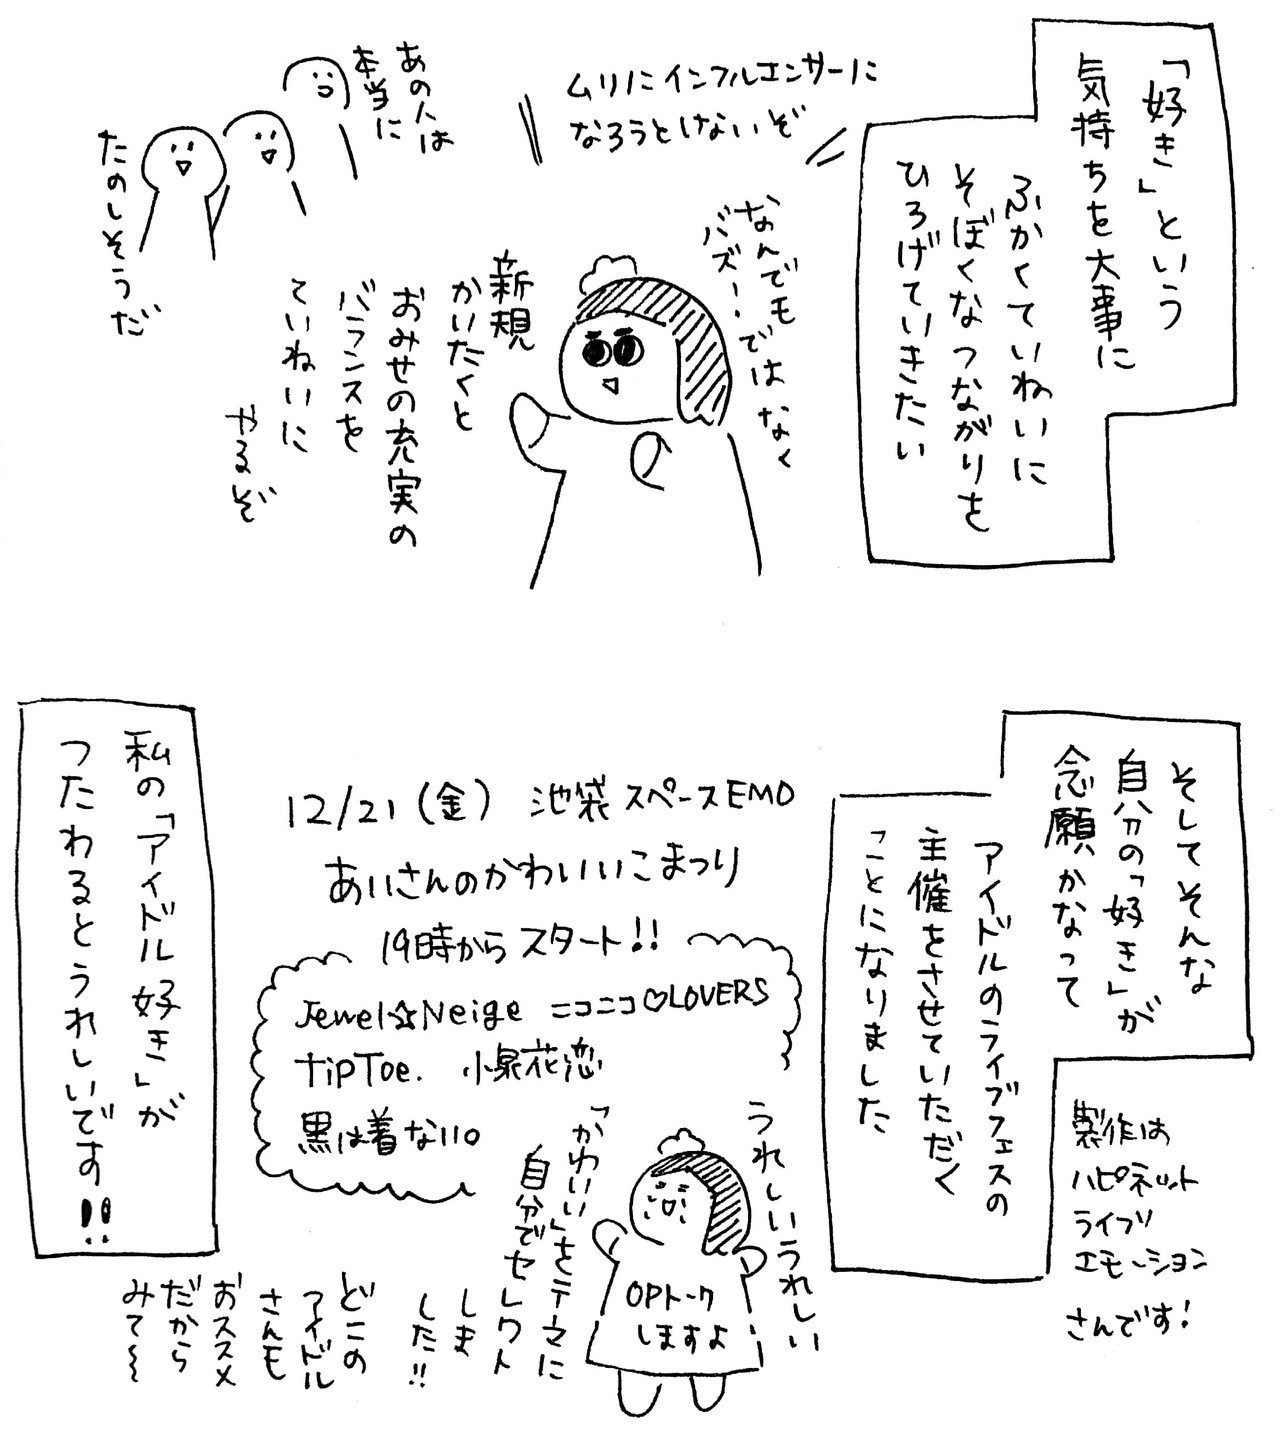 「好き」という
気持ちを大事に
ふかくていねいに
そぼくなつながりを
ひろげていきたい
ムリにインフルエンサーに
なろうとしないぞ
なんでも
バズー！ではなく
新規
かいたくと
おみせの充実の
バランスを
ていねいに
やるぞ
あの人は
本当に
たのしそうだ
そしてそんな
自分の「好き」が
念願、かなって
アイドルのライブフェスの
主催をさせていただく
ことになりました
製作は
ハピネット
ライブ
エモーション
さんです！
12/21（金） 池袋 スペースEMO
あいさんのかわいいこまつり
19時からスタート!!
Jewel☆Neige ニコニコ♡LOVERS
TipToe. 小泉花恋
黒は着ない。
うれしいうれしい
OPトーク
しますよ
「かわいい」をテーマに
自分でセレクト
しま
した!!
どこの
アイドル
さんも
おススメ
だから
みて〜〜
私の「アイドル好き」が
つたわるとうれしいです!!